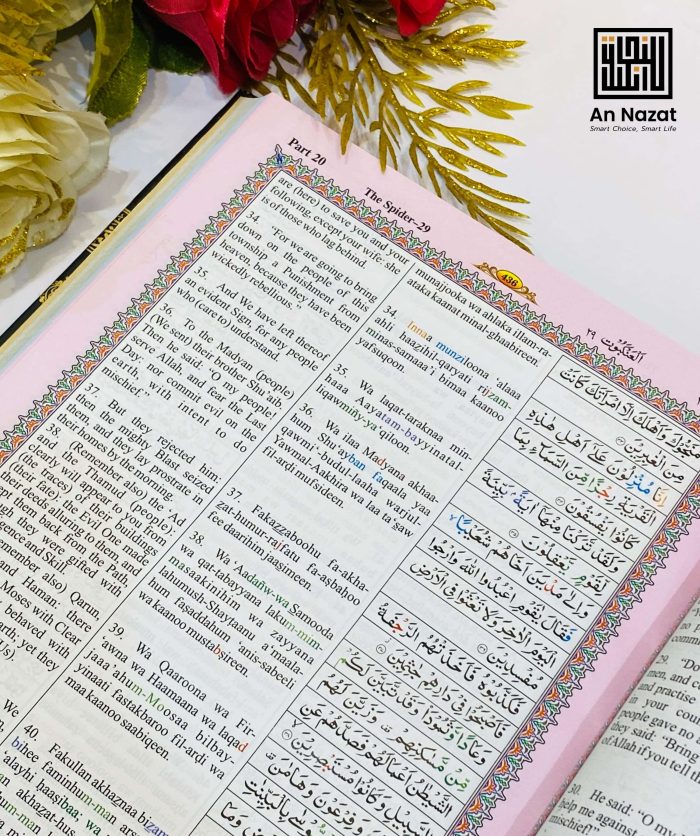 An Nazat
Smart Choice, Smart Life
Part 20
The Spider–29
436
العنكبوت ٢٩
are (here) to save you and your
following, except your wife: she
is of those who lag behind.
34. "For we are going to bring
down on the people of this
township a Punishment from
heaven, because they have been
wickedly rebellious."
35. And We have left thereof
an evident Sign, for any people
who (care to) understand.
36. To the Madyan (people)
(We sent) their brother Shu'aib
Then he said: "O my people!
serve Allah, and fear the Last
Day: nor commit evil on the
earth, with intent to do
mischief."
37. But they rejected him:
then the mighty Blast seized
them, and they lay prostrate in
their homes by the morning.
38. (Remember also) the 'Ad
and the Thamud (people)
clearly will appear to you from
(the traces) of their buildings
(their fate): the Evil One made
their deeds alluring to them, and
kept them back from the Path,
though they were gifted with
and Skill.
Qarun,
and Haman: there
Moses with Clear
behaved with
earth; yet they
Us).
We
munajjooka wa ahlaka illam-ra-
ataka kaanat minal-ghaabireen.
34. Innaa munziloona 'alaaa
ahli haazihil-qaryati rijzam-
minas-samaaa'i bimaa kaanoo
yafsuqoon.
35. Wa laqat-taraknaa min-
haaa Aayatam-bayyinatal-
liqawmiñy-ya'qiloon.
36. Wa ilaa Madyana akhaa-
hum Shu'ayban faqaala yaa
qawmi'-budul-laaha warjul-
Yawmal-Aakhira wa laa ta'saw
fil-ardi mufsideen.
37. Fakazzaboohu fa-akha-
zat-humur-rajfatu fa-asbahoo
fee daarihim jaasimeen.
38. Wa 'Aadañw-wa Samooda
wa qat-tabayyana lakum-mim-
masaakinihim wa zayyana
lahumush-Shaytaanu a'maala-
hum fasaddahum 'anis-sabeeli
wa kaanoo mustabsireen.
39. Wa Qaaroona wa Fir-
'awna wa Haamaana wa laqad
jaaa'ahum-Moosaa bilbay-
yinaati fastakbaroo fil-ardi wa
maa kaanoo saabiqeen.
40. Fakullan akhaznaa bizam-
bihee faminhum-man
alayhi haasibaa; wa minhum-
man akhazat-hus-
منجوك واهلك الا امراتك كانت
من الغبرين
انا منزلون على اهل هذه
القرية رجزا من السماء بما
كانوا يفسقون
ولقد تركنا منها اية بينة
لقوم يعقلون
والى مدين اخاهم شعيبا
فقال يقوم اعبدوا الله وارجوا
اليوم الاخر ولا تعثوا في الارض
مفسدين
فكذبوه فاخذتهم الرجفة
فاصبحوا في دارهم جثمين
وعادا وثمودا وقد تبين لكم
من مسكنهم وزين لهم
الشيطن اعمالهم فصدهم عن
السبيل وكانوا مستبصرين
وقارون وفرعون وهامن
29.
"Do
men, and c
and practise
in your co
people gave no a
they said: "Bring
of Allah if you tell t
30. He said: "O my
help me against
mischief!"